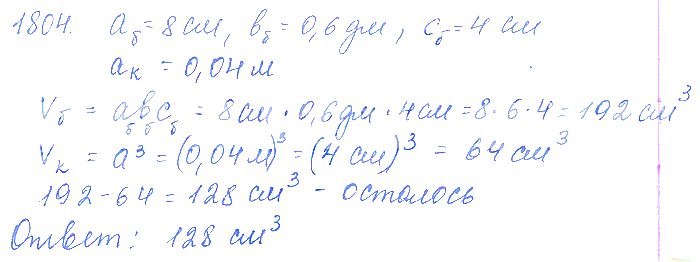 1804. aб = 8 см, вб = 0,6 дм, сб = 4 см
aк = 0,04 м
Vб = aбвбсб = 8 см · 0,6 дм · 4 см = 8 · 6 · 4 = 192 см³
Vк = a³ = (0,04 м)³ = (4 см)³ = 64 см³
192 - 64 = 128 см³ - осталось
Ответ: 128 см³